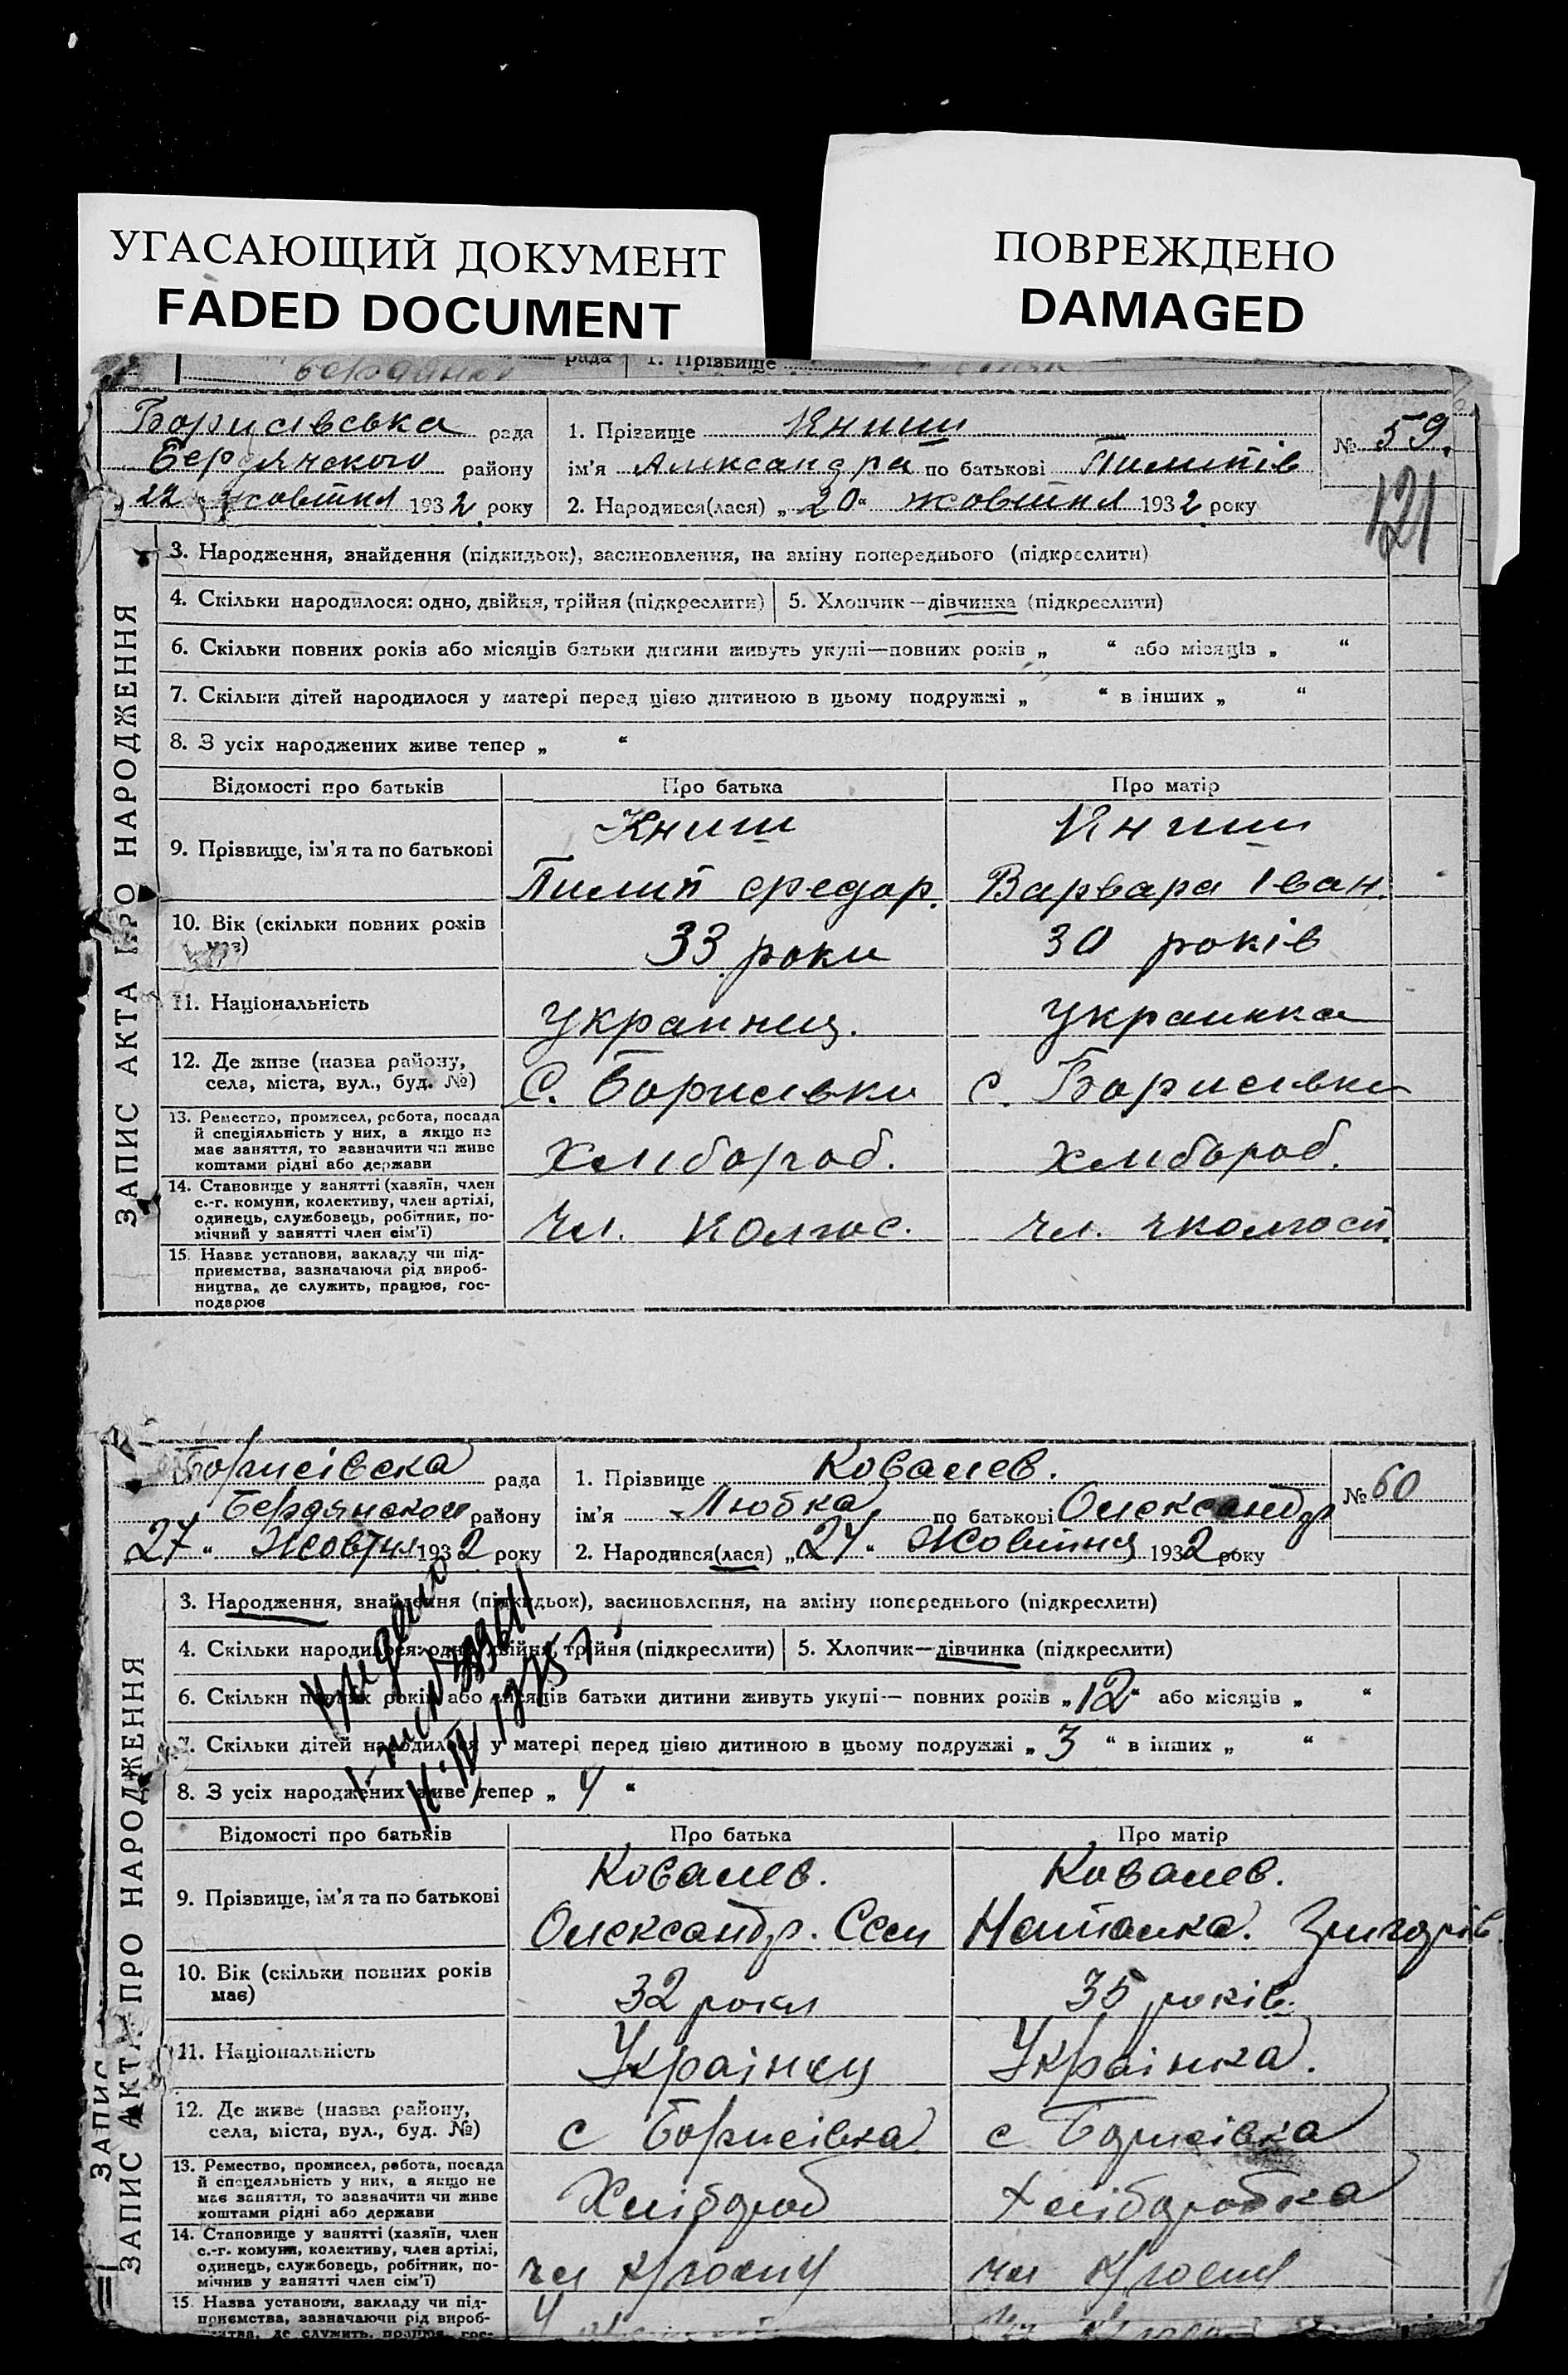 УГАСАЮЩИЙ ДОКУМЕНТ
FADED DOCUMENT
ПОВРЕЖДЕНО
DAMAGED
рада 1. Прізвище
Борисівська рада
Бердянского району
„22“ жовтня 1932 року
1. Прізвище Книш
ім'я Александра по батькові Пилипів
2. Народився(лася) „20“ жовтня 1932 року
№ 59.
121
ЗАПИС АКТА ПРО НАРОДЖЕННЯ
3. Народження, знайдення (підкидьок), засиновлення, на зміну попереднього (підкреслити)
4. Скільки народилося: одно, двійня, трійня (підкреслити) 5. Хлопчик—дівчинка (підкреслити)
6. Скільки повних років або місяців батьки дитини живуть укупі—повних років „ “ або місяців „ “
7. Скільки дітей народилося у матері перед цією дитиною в цьому подружжі „ “ в інших „ “
8. З усіх народжених живе тепер „ “
Відомості про батьків Про батька Про матір
9. Прізвище, ім'я та по батькові
Книш
Пилип Федор.
Книш
Варвара Іван.
10. Вік (скільки повних років
має)
33 роки
30 років
11. Національність
украинец.
украинка
12. Де живе (назва району,
села, міста, вул., буд. №)
С. Борисівки
с. Борисівки
13. Ремество, промисел, робота, посада
й спеціяльність у них, а якщо не
має заняття, то зазначити чи живе
коштами рідні або держави
Хлибороб.
хлибороб.
14. Становище у занятті (хазяїн, член
с.-г. комуни, колективу, член артілі,
одинець, службовець, робітник, по-
мічний у занятті член сім'ї)
Чл. колгос.
чл. колгосп.
15. Назва установи, закладу чи під-
приємства, зазначаючи рід вироб-
ництва, де служить, працює, гос-
подарює
Борисівска рада
Бердянского району
„27“ Жовтня 1932 року
1. Прізвище Ковалев.
ім'я Любка по батькові Олександр
2. Народився(лася) „24“ Жовтня 1932 року
№ 60
ЗАПИС АКТА ПРО НАРОДЖЕННЯ
ЗАПИС
3. Народження, знайдення (підкидьок), засиновлення, на зміну попереднього (підкреслити)
4. Скільки народилося: одно, двійня, трійня (підкреслити) 5. Хлопчик—дівчинка (підкреслити)
6. Скільки повних років або місяців батьки дитини живуть укупі— повних років „12“ або місяців „ “
7. Скільки дітей народилося у матері перед цією дитиною в цьому подружжі „3“ в інших „ “
8. З усіх народжених живе тепер „4“
Відомості про батьків Про батька Про матір
9. Прізвище, ім'я та по батькові
Ковалев.
Олександр. Сем
Ковалев.
Наталка. Григорів.
10. Вік (скільки повних років
має)
32 роки
35 років.
11. Національність
Українец
Українка.
12. Де живе (назва району,
села, міста, вул., буд. №)
с Борисівка
с Борисівка
13. Ремество, промисел, робота, посада
й спецеяльність у них, а якщо не
має заняття, то зазначити чи живе
коштами рідні або держави
Хлібороб
Хлiборобка
14. Становище у занятті (хазяїн, член
с.-г. комуни, колективу, член артілі,
одинець, службовець, робітник, по-
мічнив у занятті член сім'ї)
чл
чл
15. Назва установи, закладу чи під-
приємства, зазначаючи рід вироб-
ництва, де служить, працює, гос-